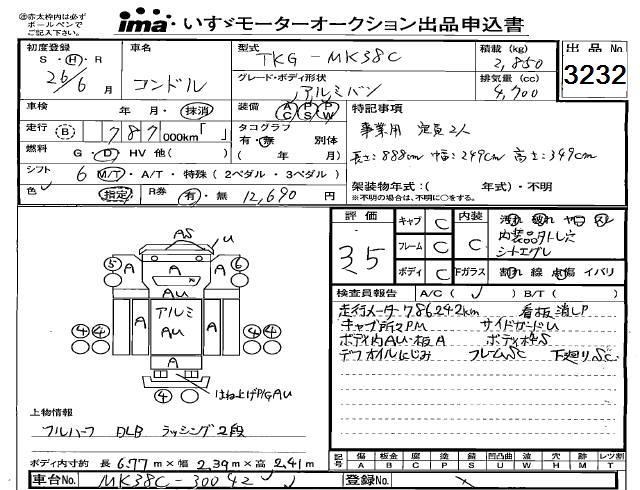 ㊟赤太枠内は必ず
ボールペンで
ご記入下さい。
ima いすゞモーターオークション出品申込書
初度登録
S・H・R
26/6 月
車名
コンドル
型式
TKG-MK38C
グレード・ボディ形状
アルミバン
積載 (kg)
2,850
排気量 (cc)
4,700
出品No
3232
車検 年 月・抹消
走行 B 787,000km「 」
燃料 G・D・HV 他( )
シフト 6 M/T・A/T・特殊(2ペダル・3ペダル)
色 指定 R券 有・無 12,690円
装備 AC PS PW
タコグラフ
有・無 別体
( 年 月)
特記事項
事業用 定員2人
長さ:888cm 幅:249cm 高さ:349cm
架装物年式:( 年式)・不明
※不明の場合は、不明に○をする。
評価
3.5
キャブ C
フレーム C
ボディ C
内装
Fガラス
汚れ 破れ ヤコ スレ
内装品外し穴
シートエグレ
割れ 線 点傷 イバリ
検査員報告 A/C( ✓ ) B/T( )
走行メータ786242km 看板消しP
キャブ所々PM サイドガードU
ボディ内AU・板A ボディ水S
デフオイルにじみ フレームSC 下廻りSC
AS U
⑤ A A ⑥
A
AU
アルミ
AU
A A
④④ ④④
A
④
はね上げP/G AU
上物情報
フルハーフ DLB ラッシング2段
ボディ内寸約 長 6.77 m×幅 2.39 m×高 2.41 m
記号 傷 板金 腐 塗 錆 凹凸曲 波 穴 跡 レツ割
A B C P S U W H M T
車台No. MK38C-30042 登録No.